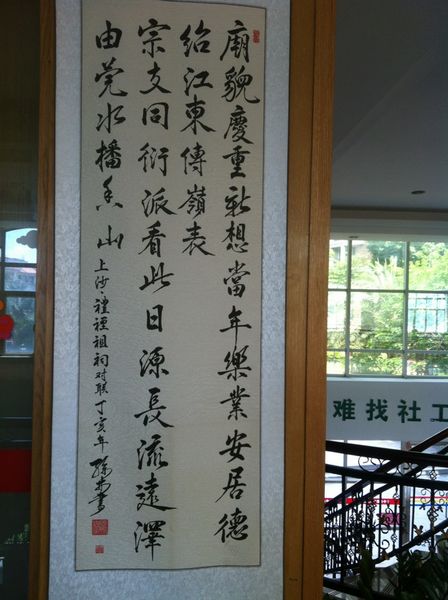 廟貌慶重新想當年樂業安居德
紹江東傳嶺表
宗支同衍派看此日源長流遠澤
由莞水播香山
上沙·禮禋祖祠对联丁亥年
难找社工